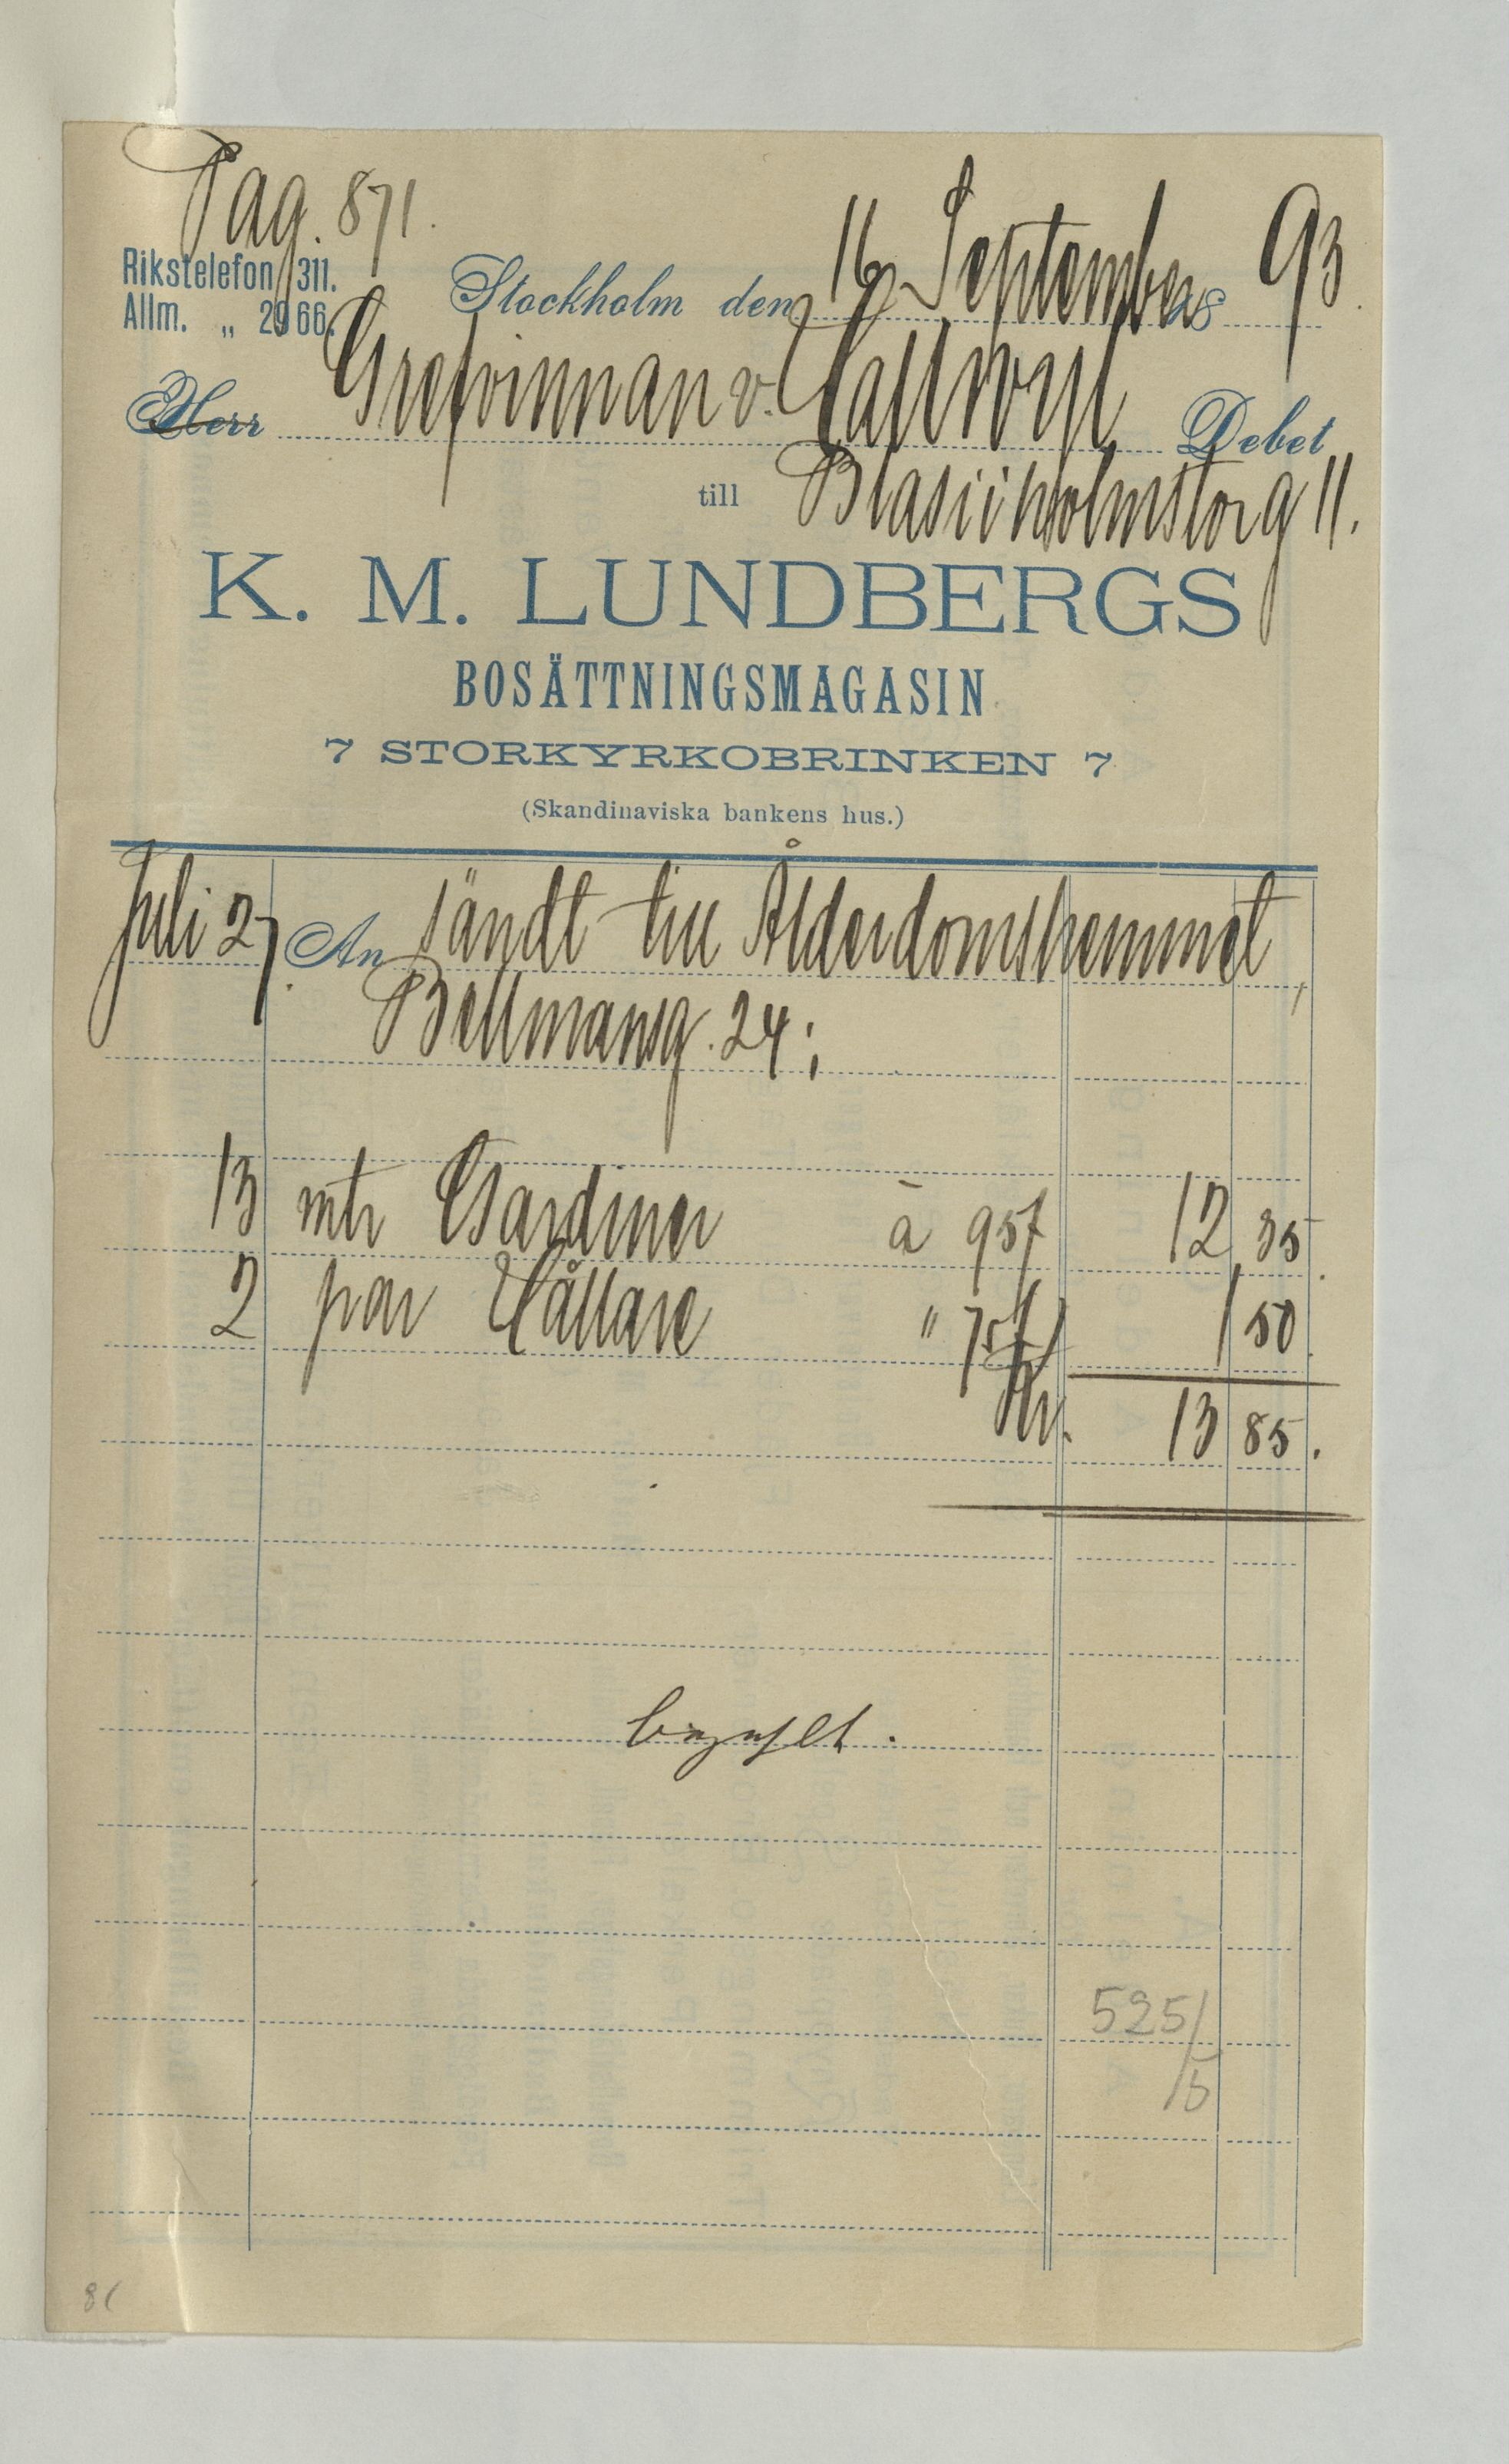 Pag. 871.
Rikstelefon 311.
Allm. „ 2966.
Stockholm den 16 September 18 93.
Herr Grefvinnan v. Hallwyl, Debet
till Blasiiholmstorg 11.
K. M. LUNDBERGS
BOSÄTTNINGSMAGASIN
7 STORKYRKOBRINKEN 7
(Skandinaviska bankens hus.)
Juli 27. An sändt till Ålderdomshemmet,
Bellmansg. 24;
13 mtr Gardiner à 95f 12 35.
2 par Hållare " 75f 1 50.
Kr. 13 85.
bezahlt.
525/
15
81